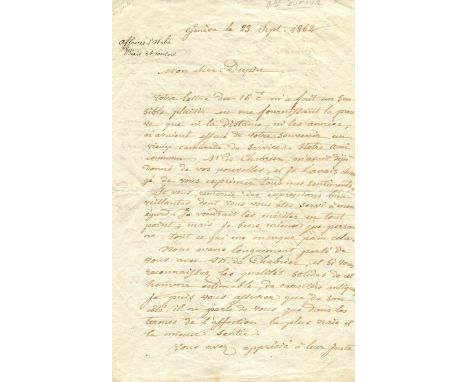 Genève le 23 Sept. 1864
Affaires d'Italie
Mon cher Dupin
Votre lettre du 16 Ct m'a fait un sen-
sible plaisir en me fournissant la preu-
ve que ni la distance, ni les années,
n'avaient effacé de votre souvenir un
vieux camarade de service. Notre ami
commun, Mr de Chabrier, m'avait déjà
donné de vos nouvelles, et je l'avais
de vous exprimer tous mes sentiments.
Je vous remercie des expressions bien-
veillantes dont vous vous êtes servi à mon
égard. Je voudrais les mériter en tout
point; mais je sens, mieux que person-
ne tout ce qui me manque pour cela.
Nous avons longuement parlé de
vous avec Mr de Chabrier, et si vous
reconnaissez les qualités solides de cet
homme estimable, de caractère intègre,
je puis vous assurer que de son
côté, il ne parle de vous que dans les
termes de l'affection la plus vraie et
la mieux sentie.
Vous avez apprécié à leur juste